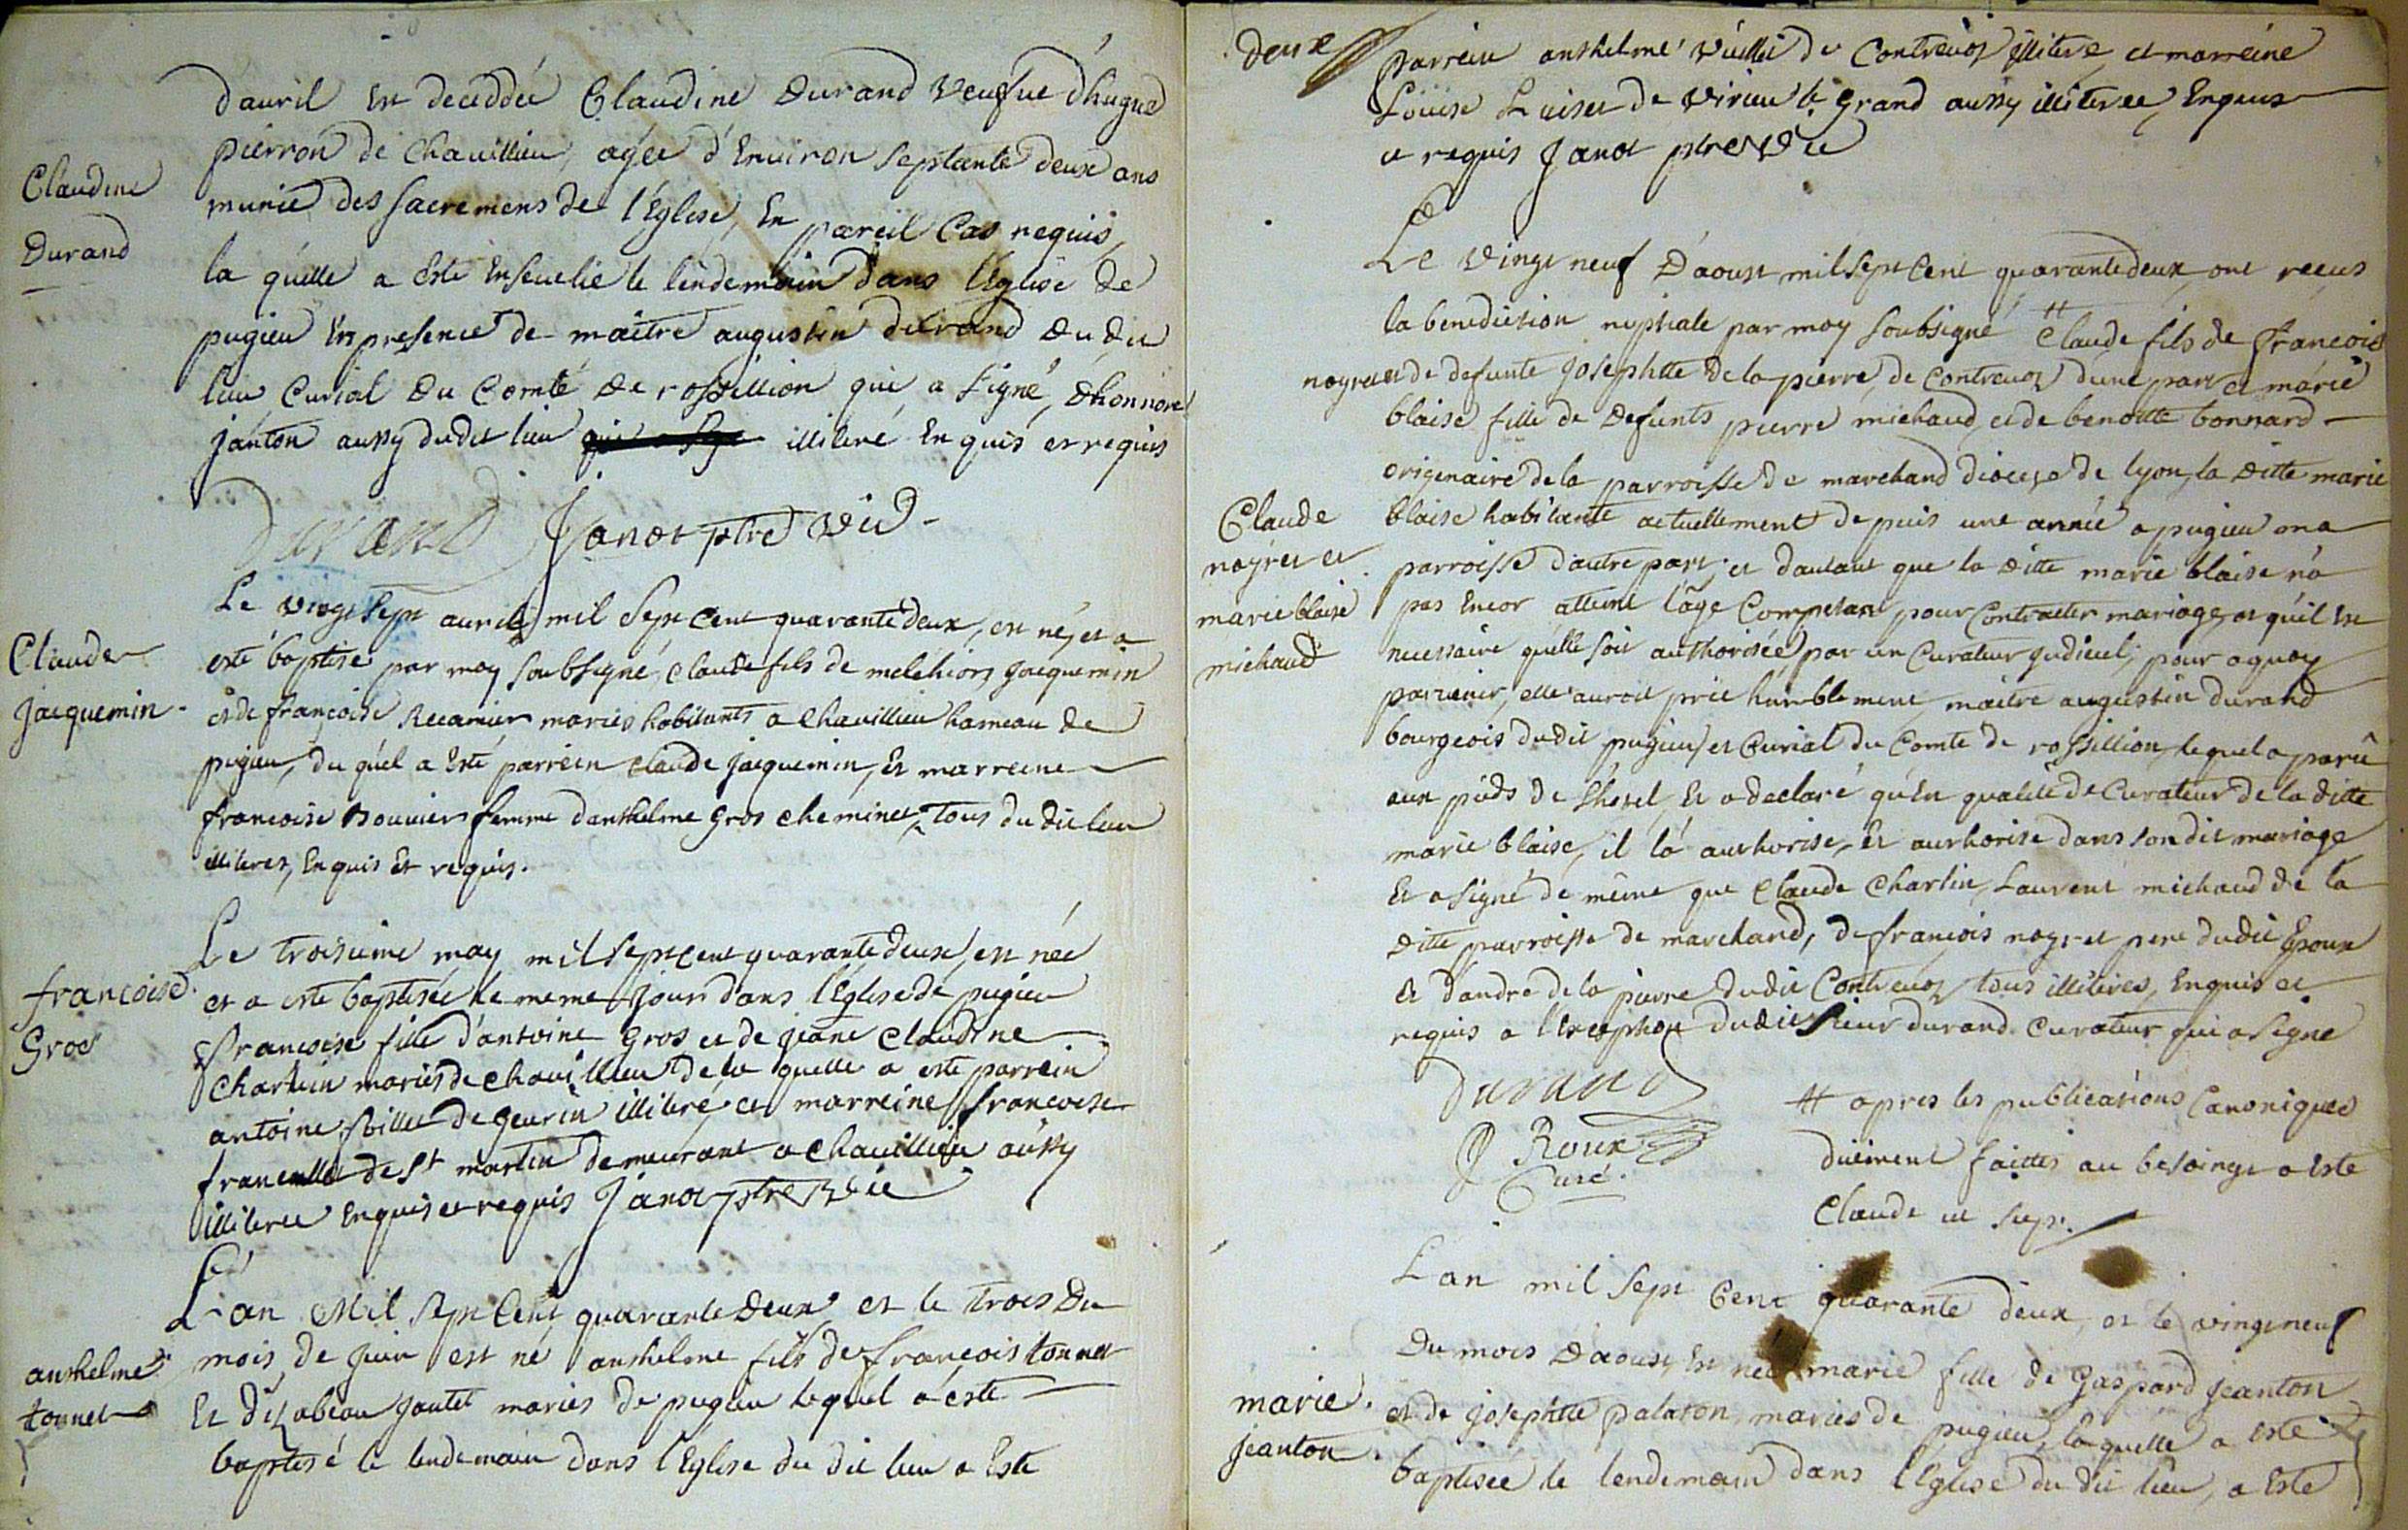 d'avril est deceddée Claudine Durand Veufve d'hugue
pierron de Chavillieu, agée d'Environ septante deux ans
Claudine
Durand
munie des sacremens de l'Eglise, En pareil Cas requis,
la quelle a Esté Ensevelie le lendemain dans l'Eglise de
pugieu En presence de maître augustin durand du dit
lieu Curial du Comté de rossillion qui a signé, d'honnoré
janton aussy dudit lieu illiteré Enquis et requis
Durand Janot ptre vic
Claude
Jacquemin
Le vingt sept avril mil sept cent quarante deux, est né, et a
esté baptisé par moy soubsigné, claude fils de melchior jacquemin
et de françoise Recamier mariés habitants a Chavillieu hameau de
pugieu, du quel a Esté parrein claude jacquemin, Et marreine
françoise Bouvier femme d'anthelme gros cheminet, tous du dit lieu
illiteres, Enquis Et requis.
françoise
Gros
Le troisieme may mil sept cent quarante deux, est née
et a esté baptisée le meme jour dans l'Eglise de pugieu
Françoise fille d'antoine Gros et de jeane Claudine
Charlin mariés de Chavillieu de la quelle a esté parrein
antoine billet de geurin illiteré et marreine françoise
de St martin demeurant a Chavillieu aussy
illiterée Enquis et requis Janot ptre vic
anthelme
tonnet
L'an Mil sept Cent quarante Deux et le trois Du
mois de juin est né anthelme fils de françois tonnet
Et d'isabeau jantet mariés de pugieu lequel a esté
baptisé le lendemain dans l'Eglise du dit lieu a Esté
deux
parrein anthelme vuillet de Contrevoz illiteré et marreine
Louise Luiset de Virieu le grand aussy illiterée, Enquis
et requis Janot ptre vic
Claude
noyret et
marie blaise
michaud
Le vingt neuf D'aoust mil sept Cent quarante deux, ont reçus
la benediction nuptiale par moy soubsigné # Claude fils de françois
noyret et de defunte josephtte de la pierre de Contrevoz d'une part et marie
blaise fille de Defunts pierre michaud, et de benoitte bonnard
originaire de la parroisse de marchand diocese de lyon, la ditte marie
blaise habitante actuellement depuis une année a pugieu ma
parroisse d'autre part, et d'autant que la ditte marie blaise n'a
pas Encor atteint l'âge Competant pour Contracter mariage, et qu'il Est
necessaire qu'elle soit authorisée par un Curateur judiciel, pour a quoy
parvenir, elle auroit prié humblement maître augustin durand
bourgeois dudit pugieu, et Curial du Comté de rossillion, lequel a paru
aux pieds de l'hotel, Et a declaré qu'En qualité de Curateur de la ditte
marie blaise, il l'a authorisé, Et authorise dans son dit mariage
Et a signé de même que Claude Charlin, Laurent michaud de la
ditte parroisse de marchand, de françois noyret pere dudit Epoux
Et d'andré de la pierre dudit Contrevoz tous illiteres, Enquis et
requis a l'Exception dudit sieur durand Curateur qui a signé
Durand
J Roux
Curé.
# apres les publications Canoniques
duëment faittes au besoing a Esté
Claude ut supr.
marie
jeanton
L'an mil sept Cent quarante deux, et le vingt neuf
Du mois D'aoust, Est née marie fille de gaspard jeanton
et de josephtte palaton, mariés de pugieu, laquelle a Esté
baptisée le lendemain dans l'Eglise du dit lieu, a Esté